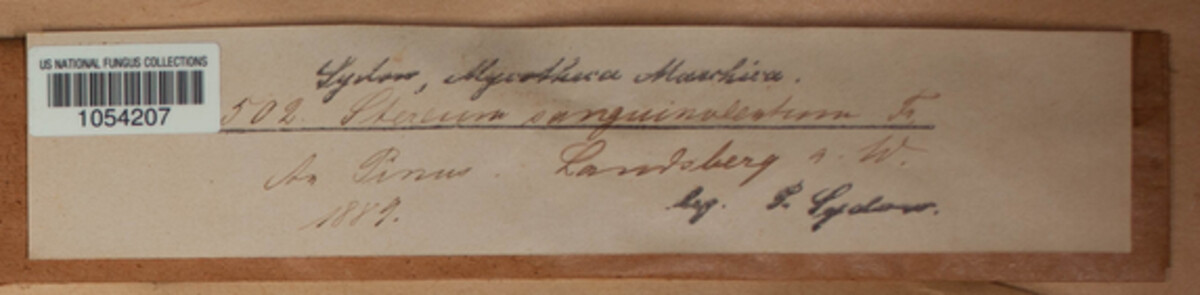 US NATIONAL FUNGUS COLLECTIONS
1054207
Sydow, Mycotheca Marchica.
502. Stereum sanguinolentum Fr.
An Pinus. Landsberg a. W.
1889.
leg. P. Sydow.